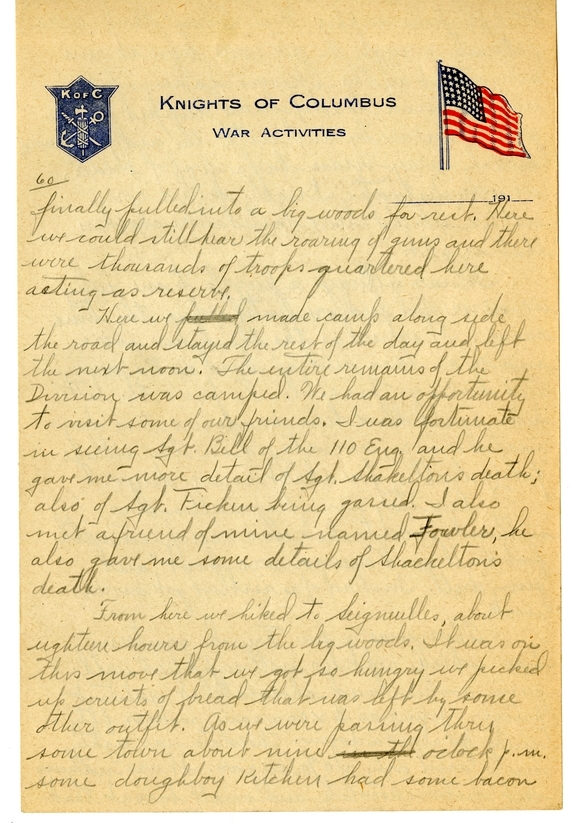 K OF C
KNIGHTS OF COLUMBUS
WAR ACTIVITIES
60
191
finally pulled into a big woods for rest. Here
we could still hear the roaring of guns and there
were thousands of troops quartered here
acting as reserve.
Here we made camp along side
the road and stayed the rest of the day and left
the next noon. The entire remains of the
Division was camped. We had an opportunity
to visit some of our friends. I was fortunate
in seeing Sgt. Bill of the 110 Eng. and he
gave me more detail of Sgt. Shakelton's death;
also of Sgt. being gassed. I also
met a friend of mine named Fowler, he
also gave me some details of Shackelton's
death.
From here we hiked to Seigneulles, about
eighteen hours from the big woods. It was on
this move that we got so hungry we picked
up crusts of bread that was left by some
other outfit. As we were passing thru
some town about nine oclock p.m.
some doughboy Kitchen had some bacon